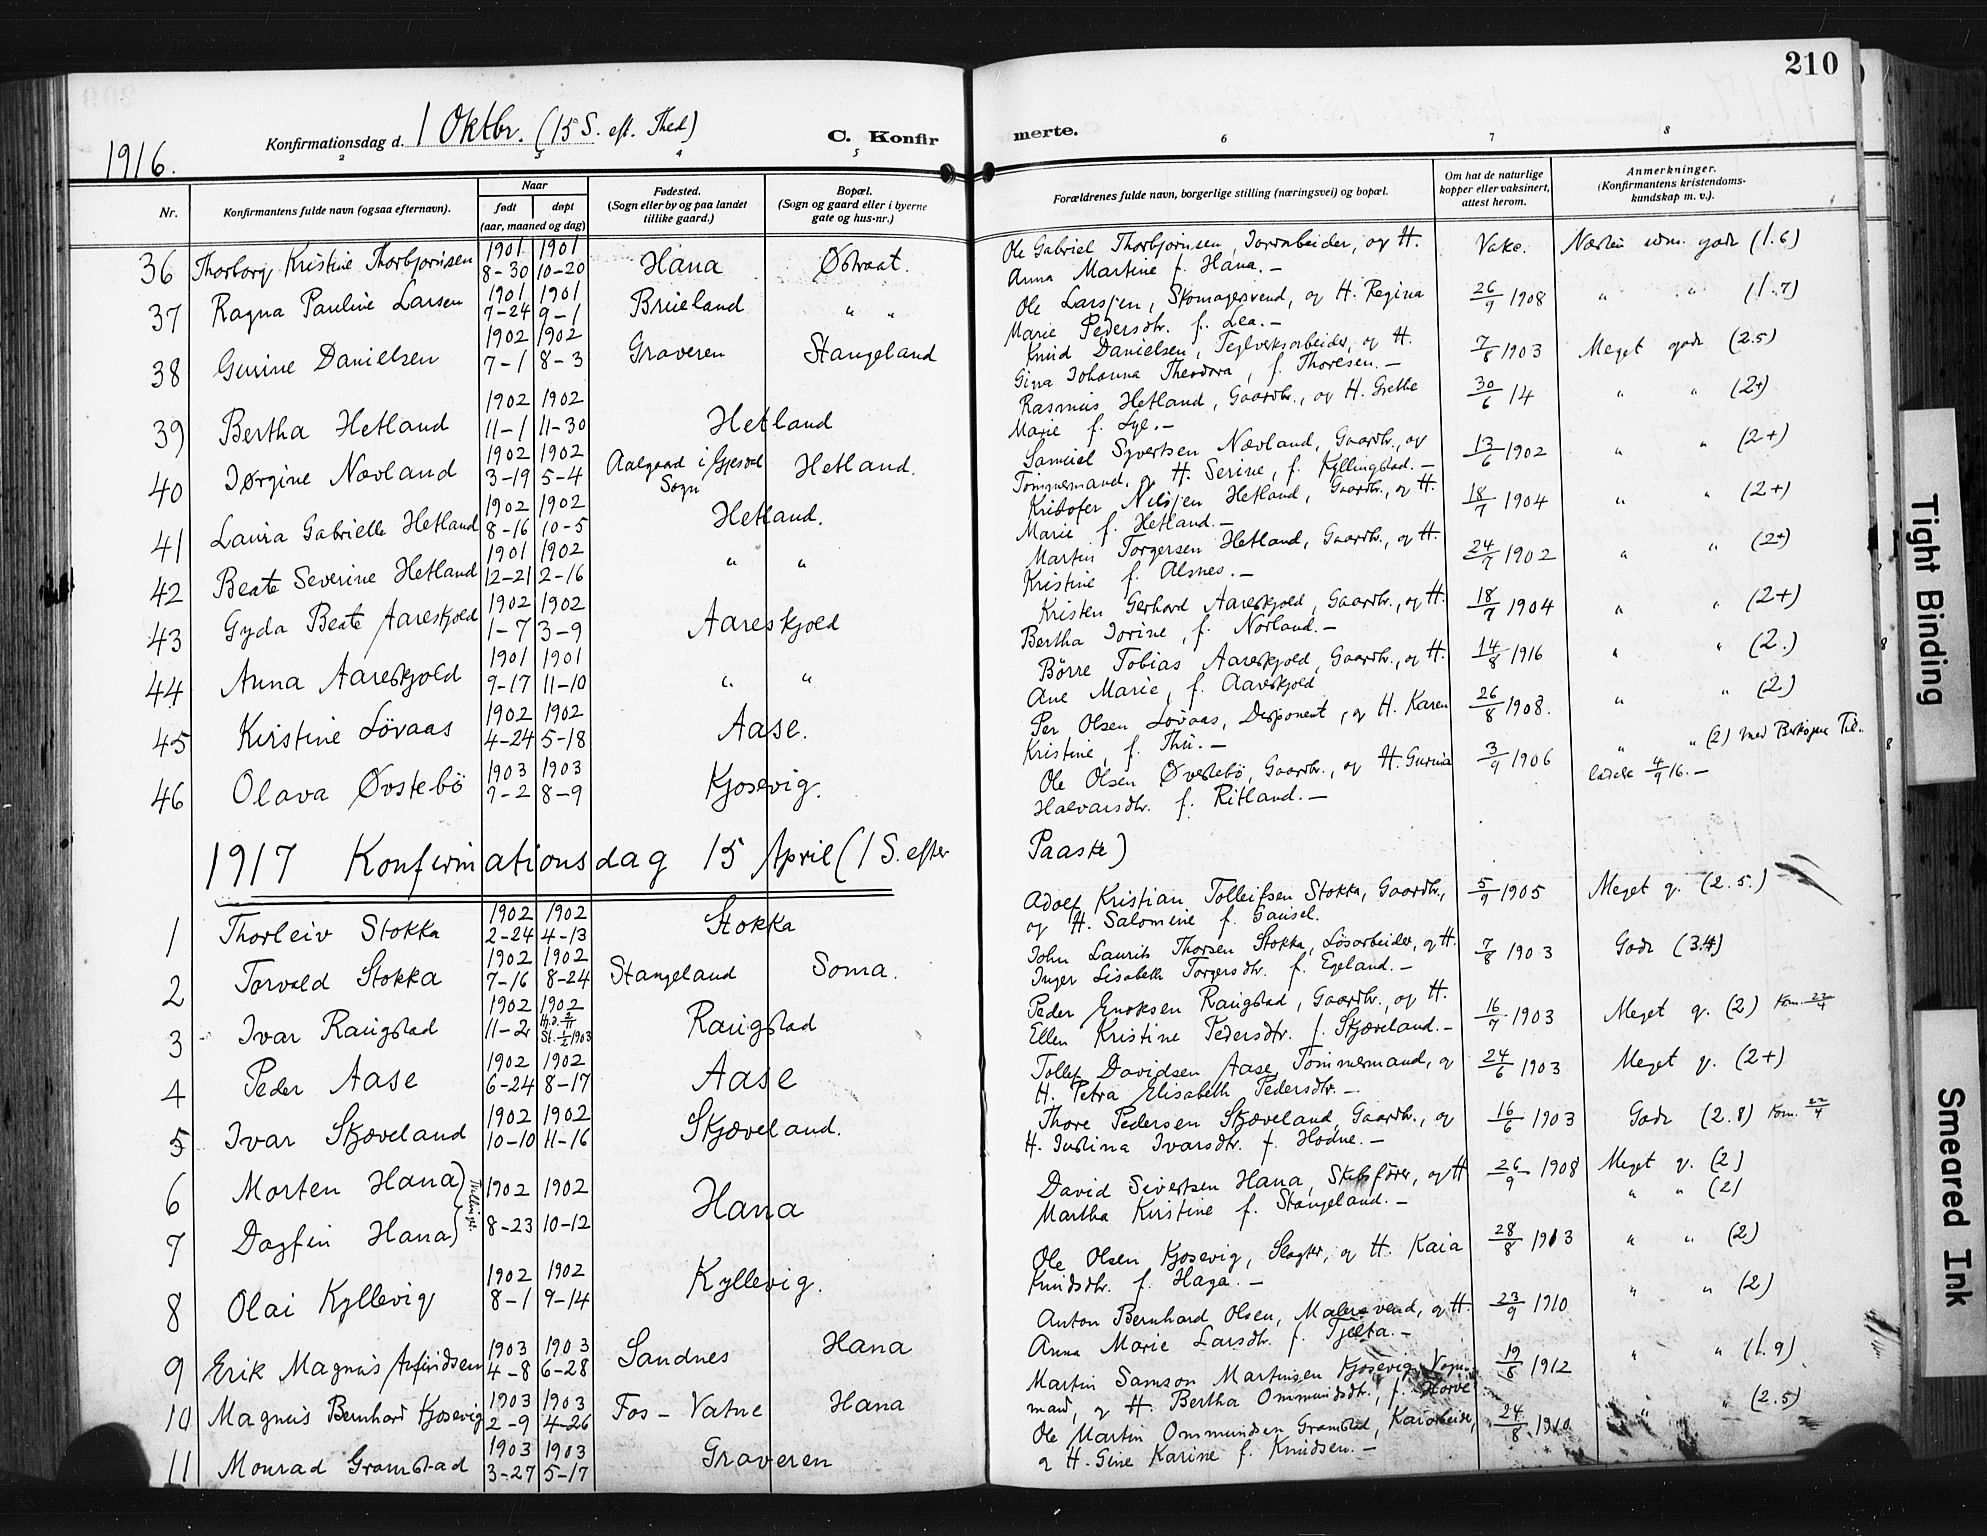 210
1916.
Konfirmationsdag d. 1 Oktbr. (15 S. eft. Thed)
C. Konfirmerte.
2 3 4 5 6 7 8
Nr.
Konfirmantens fulde navn (ogsaa efternavn).
Naar
født
døpt
(aar, maaned og dag)
Fødested.
(Sogn eller by og paa landet
tillike gaard.)
Bopæl.
(Sogn og gaard eller i byerne
gate og hus-nr.)
Forældrenes fulde navn, borgerlige stilling (næringsvei) og bopæl.
Om hat de naturlige
kopper eller vaksinert,
attest herom.
Anmerkninger.
(Konfirmantens kristendoms-
kundskap m. v.).
36 Thorborg Kristine Thorbjørnsen 1901 8-30 1901 10-20 Hana Østraat. Ole Gabriel Thorbjørnsen, Jornarbeider, og H. Vakc. (1.6)
Anna Martine f. Hana. —
37 Ragna Pauline Larsen 1901 7-24 1901 9-1 Brueland " " Ole Larssen, Skomagersvend, og H. Regina 26/9 1908 " " (1.7)
Marie Pedersdtr. f. Lea. —
38 Gurine Danielsen 1902 7-1 1902 8-3 Graveren Stangeland Knud Danielsen, Teglverksarbeider, og H. 7/8 1903 Meget godt (2.5)
Gina Johanna Theodora, f. Thoresen. —
39 Bertha Hetland 1902 11-1 1902 11-30 Hetland Rasmus Hetland, Gaardbr., og H. Grethe 30/6 14 " " (2+)
Marie f. Lye. —
40 Jørgine Nævland 1902 3-19 1902 5-4 Aalgaard i Gjesdal Sogn Hetland. Samuel Syvertsen Nævland, Gaardbr., og 13/6 1902 " " (2+)
Tømmermand, og H. Serine, f. Kyllingstad. —
41 Laura Gabrielle Hetland 1902 8-16 1902 10-5 Hetland. Kristofer Nilsjen Hetland, Gaardbr., og H. 18/7 1904 " " (2+)
Marie f. Hetland. —
42 Beate Severine Hetland 1901 12-21 1902 2-16 " " Martin Torgersen Hetland, Gaardbr., og H. 24/7 1902 " " (2+)
Kristine f. Alsnes. —
43 Gyda Beate Aareskjold 1902 1-7 1902 3-9 Aareskjold Kristen Gerhard Aareskjold, Gaardbr., og H. 18/7 1904 " " (2+)
Bertha Jorine, f. Norland. —
44 Anna Aareskjold 1901 9-17 1901 11-10 " " Börre Tobias Aareskjold, Gaardbr., og H. 14/8 1916 " " (2.)
Ane Marie, f. Aareskjold
45 Kirstine Lövaas 1902 4-24 1902 5-18 Aase. Per Olsen Lövaas, Disponent, og H. Karen 26/8 1908. " " (2)
Kristine, f. Thu. —
46 Olava Øvstebö 1903 7-2 1903 8-9 Kjosevig. Ole Olsen Øvstebö, Gaardbr., og H. Gurina 3/9 1906 " " (2) med Biskopens Til-
Halvarsdtr. f. Ritland. — ladelse 4/9 16. —
1917 Konfirmationsdag 15 April (1 S. efter Paaske)
1 Thorleiv Stokka 1902 2-24 1902 4-13 Stokka Adolf Kristian Tolleifsen Stokka, Gaardbr., 5/9 1905 Meget g. (2.5.)
og H. Salomine f. Gausel.
2 Torvald Stokka 1902 7-16 1902 8-24 Stangeland Soma. John Laurits Thorsen Stokka, Løsarbeider, og H. 7/8 1903 Godt (3.4)
Inger Lisabeth Torgersdtr. f. Egeland. —
3 Ivar Raugstad 1902 11-2 1902 Hj.d. 2/11 St. 1/2 1903 Raugstad Peder Enoksen Raugstad, Gaardbr., og H. 16/7 1903 Meget g. (2) Kom. 22/4
Ellen Kristine Pedersdtr. f. Skjæveland. —
4 Peder Aase 1902 6-24 1902 8-17 Aase Tollef Davidsen Aase, Tømmermand, og 24/6 1903 Meget g. (2+)
H. Petra Elisabeth Pedersdtr. —
5 Ivar Skjæveland 1902 10-10 1902 11-16 Skjæveland. Thore Pedersen Skjæveland, Gaardbr., og 16/6 1903 Godt (2.8) Kom. 22/4
H. Justina Ivarsdtr. f. Hodne. —
6 Morten Hana 1902 8-23 1902 10-12 Hana David Sivertsen Hana, Skibsfører, og H 26/9 1908 Meget g. (2)
Tvillinger.
7 Dagfin Hana Martha Kirstine f. Stangeland. — " " (2)
8 Olai Kyllevig 1902 8-1 1902 9-14 Kyllevig. Ole Olsen Kjosevig, Slagter, og H. Kaia 28/8 1913 " " (2)
Knudsdtr. f. Haga. —
9 Erik Magnus Arfindsen 1903 4-8 1903 6-28 Sandnes Hana Anton Bernhard Olsen, Malersvend, og H. 23/9 1910 " " (2)
Anna Marie Larsdtr. f. Tjelta. —
10 Magnus Bernhard Kjosevig 1903 2-9 1903 4-26 Fos - Vatne Hana Martin Samson Martinsen Kjosevig, Vogn- 19/8 1912 " " (1.9)
mand, og H. Bertha Ommundsdtr., f. Horve
11 Monrad Gramstad 1903 3-27 1903 5-17 Graveren Ole Martin Ommundsen Gramstad, Kararbeider, 24/8 1910 " " (2.5)
og H. Gine Karine f. Knudsen. —
Tight Binding
Smeared Ink